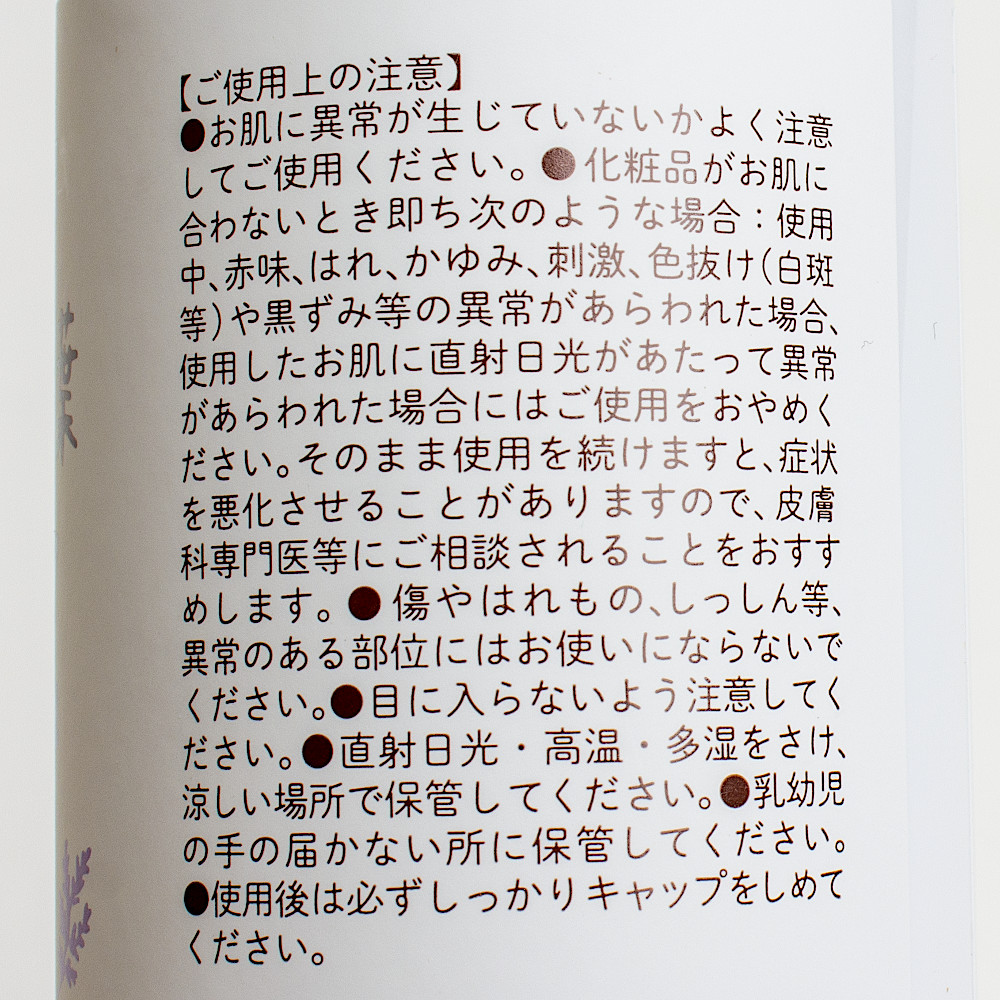 【ご使用上の注意】
●お肌に異常が生じていないかよく注意
してご使用ください。●化粧品がお肌に
合わないとき即ち次のような場合：使用
中、赤味、はれ、かゆみ、刺激、色抜け（白斑
等）や黒ずみ等の異常があらわれた場合、
使用したお肌に直射日光があたって異常
があらわれた場合にはご使用をおやめく
ださい。そのまま使用を続けますと、症状
を悪化させることがありますので、皮膚
科専門医等にご相談されることをおすす
めします。●傷やはれもの、しっしん等、
異常のある部位にはお使いにならないで
ください。●目に入らないよう注意してく
ださい。●直射日光・高温・多湿をさけ、
涼しい場所で保管してください。●乳幼児
の手の届かない所に保管してください。
●使用後は必ずしっかりキャップをしめて
ください。